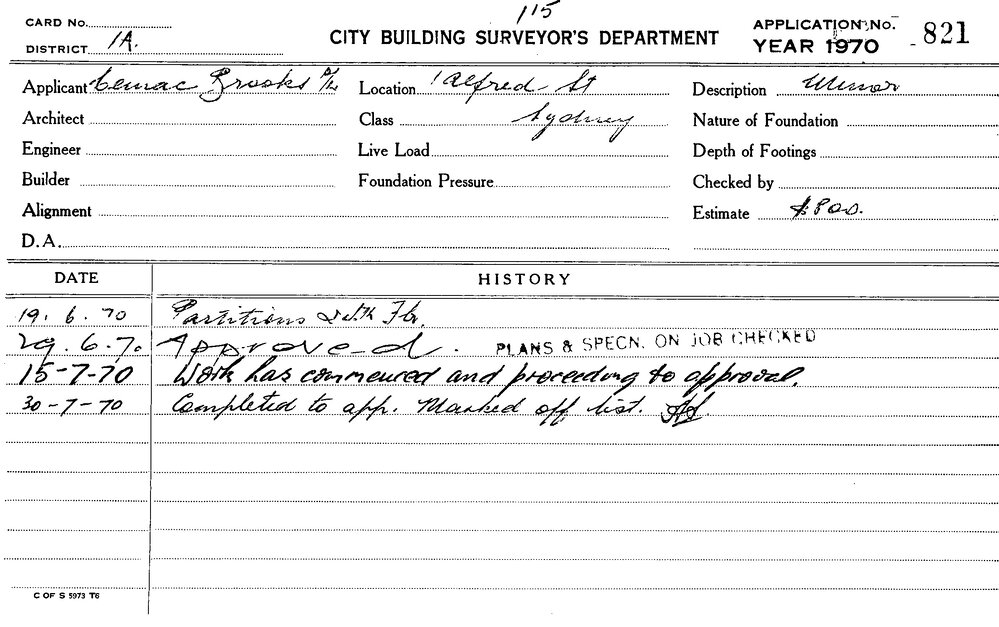 115
CARD No.
DISTRICT 1A.
CITY BUILDING SURVEYOR'S DEPARTMENT
APPLICATION No. 821
YEAR 1970
Applicant Cemac Brooks P/L
Location 1 Alfred St
Description Minor
Architect
Class Sydney
Nature of Foundation
Engineer
Live Load
Depth of Footings
Builder
Foundation Pressure
Checked by
Alignment
Estimate $800.
D.A.
DATE HISTORY
19.6.70 Partitions Flr.
29.6.70 Approved. PLANS & SPECN. ON JOB CHECKED
15-7-70 Work has commenced and proceeding to approval.
30-7-70 Completed to app. Marked off list.
C OF S 5973 T6